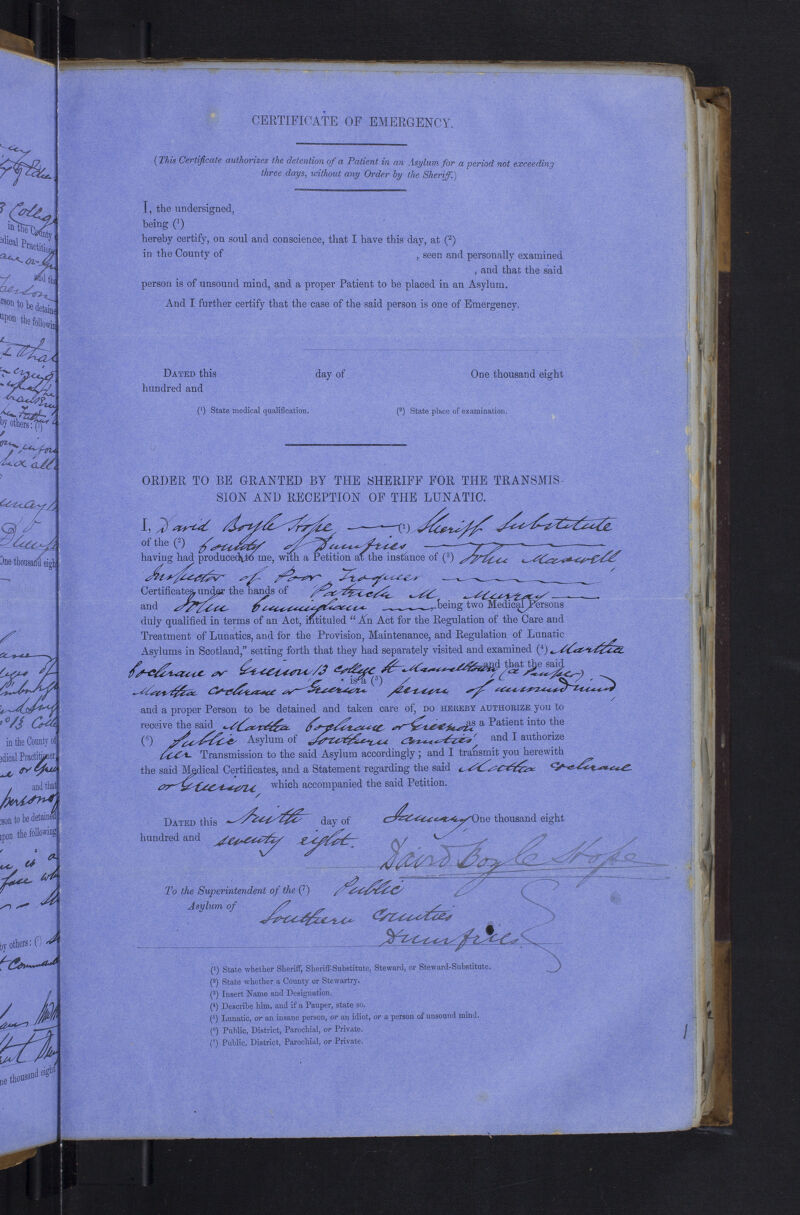 CERTIFICATE OF EMERGENCY.
(This Certificate authorizes the detention of a Patient in an Asylum for a period not exceeding
three days, without any Order by the Sheriff.)
I, the undersigned,
being (¹)
hereby certify, on soul and conscience, that I have this day, at (²)
in the County of , seen and personally examined
, and that the said
person is of unsound mind, and a proper Patient to be placed in an Asylum.
And I further certify that the case of the said person is one of Emergency.
DATED this day of One thousand eight
hundred and
(¹) State medical qualification. (²) State place of examination.
ORDER TO BE GRANTED BY THE SHERIFF FOR THE TRANSMIS-
SION AND RECEPTION OF THE LUNATIC.
I, David Boyle Hope (¹) Sheriff Substitute
of the (²) County of Dumfries
having had produced to me, with a Petition at the instance of (³) John Maxwell
Inspector of Poor Troqueer
Certificates under the hands of Patrick M. Murray
and John Cunningham being two Medical Persons
duly qualified in terms of an Act, intituled "An Act for the Regulation of the Care and
Treatment of Lunatics, and for the Provision, Maintenance, and Regulation of Lunatic
Asylums in Scotland," setting forth that they had separately visited and examined (⁴) Martha
Cochrane or Grierson 13 College St Maxwelltown (a Pauper) and that the said
Martha Cochrane or Grierson is a (⁵) person of unsound mind,
and a proper Person to be detained and taken care of, DO HEREBY AUTHORIZE you to
receive the said Martha Cochrane or Grierson as a Patient into the
(⁶) Public Asylum of Southern Counties, and I authorize
her Transmission to the said Asylum accordingly; and I transmit you herewith
the said Medical Certificates, and a Statement regarding the said Martha Cochrane
or Grierson, which accompanied the said Petition.
DATED this Ninth day of January One thousand eight
hundred and seventy eight.
David Boyle Hope
To the Superintendent of the (⁷) Public
Asylum of
Southern Counties
Dumfries
(¹) State whether Sheriff, Sheriff-Substitute, Steward, or Steward-Substitute.
(²) State whether a County or Stewartry.
(³) Insert Name and Designation.
(⁴) Describe him, and if a Pauper, state so.
(⁵) Lunatic, or an insane person, or an idiot, or a person of unsound mind.
(⁶) Public, District, Parochial, or Private.
(⁷) Public, District, Parochial, or Private.